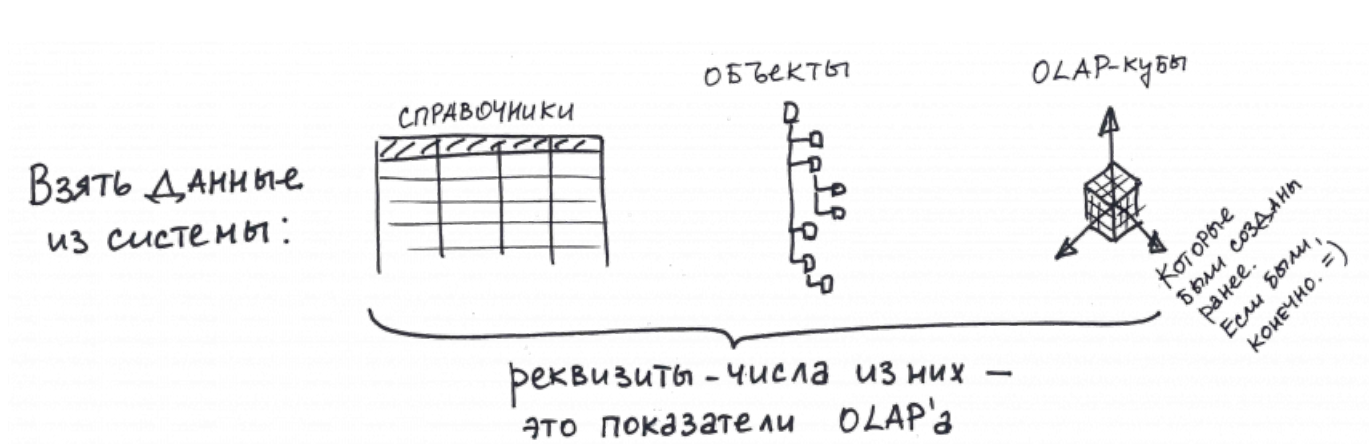 Взять данные
из системы:
СПРАВОЧНИКИ
ОБЪЕКТЫ
OLAP-КУБЫ
Которые
были созданы
ранее.
Если были,
конечно. =)
реквизиты-числа из них —
это показатели OLAP'а